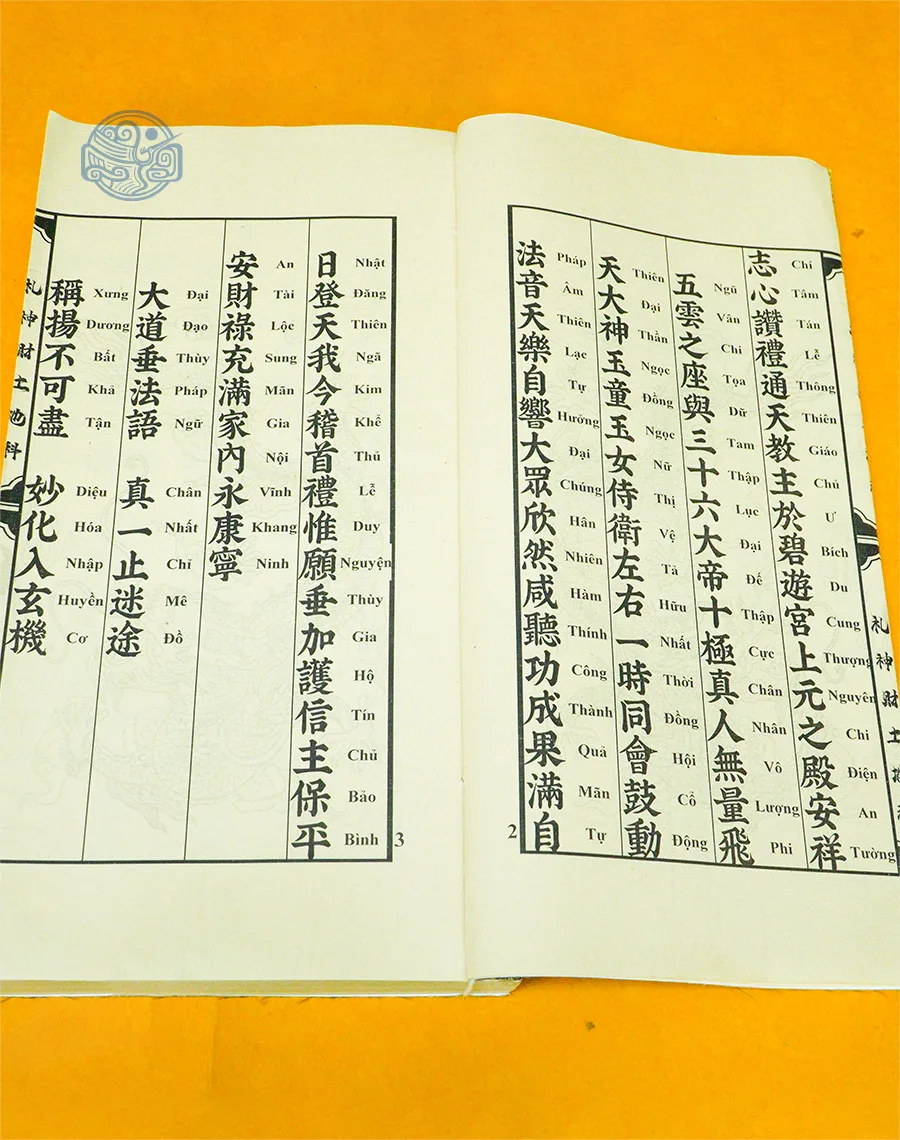 志心讚禮通天教主於碧遊宮上元之殿安祥
Chí Tâm Tán Lễ Thông Thiên Giáo Chủ Ư Bích Du Cung Thượng Nguyên Chi Điện An Tường
五雲之座與三十六大帝十極真人無量飛
Ngũ Vân Chi Tọa Dữ Tam Thập Lục Đại Đế Thập Cực Chân Nhân Vô Lượng Phi
天大神玉童玉女侍衛左右一時同會鼓動
Thiên Đại Thần Ngọc Đồng Ngọc Nữ Thị Vệ Tả Hữu Nhất Thời Đồng Hội Cổ Động
法音天樂自響大眾欣然咸聽功成果滿自
Pháp Âm Thiên Lạc Tự Hưởng Đại Chúng Hân Nhiên Hàm Thính Công Thành Quả Mãn Tự
2
日登天我今稽首禮惟願垂加護信主保平
Nhật Đăng Thiên Ngã Kim Khể Thủ Lễ Duy Nguyện Thùy Gia Hộ Tín Chủ Bảo Bình
安財祿充滿家內永康寧
An Tài Lộc Sung Mãn Gia Nội Vĩnh Khang Ninh
大道垂法語 真一止迷途
Đại Đạo Thùy Pháp Ngữ Chân Nhất Chỉ Mê Đồ
稱揚不可盡 妙化入玄機
Xưng Dương Bất Khả Tận Diệu Hóa Nhập Huyền Cơ
3
礼神財土地科
礼神財土